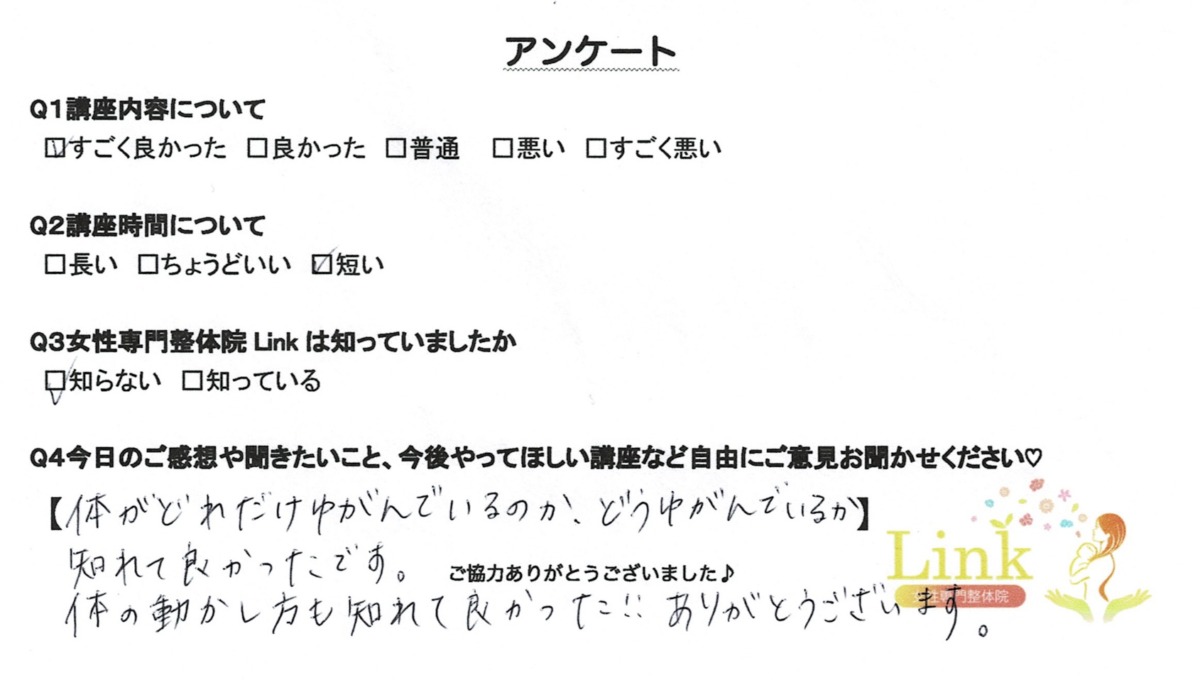 アンケート
Q1講座内容について
☑すごく良かった □良かった □普通 □悪い □すごく悪い
Q2講座時間について
□長い □ちょうどいい ☑短い
Q3女性専門整体院 Link は知っていましたか
☑知らない □知っている
Q4今日のご感想や聞きたいこと、今後やってほしい講座など自由にご意見お聞かせください♡
【体がどれだけゆがんでいるのか、どうゆがんでいるか】
知れて良かったです。
ご協力ありがとうございました♪
体の動かし方も知れて良かった!! ありがとうございます。
Link
女性専門整体院